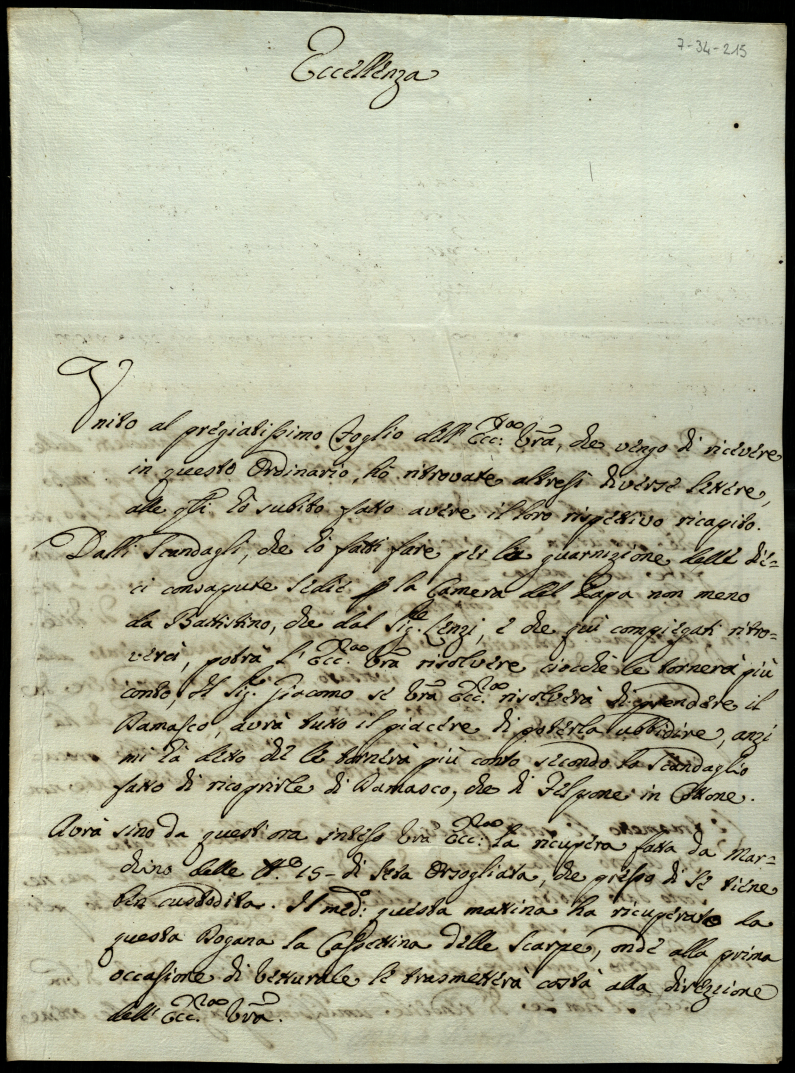 7-34-215
Eccellenza
Unito al pregiatissimo Foglio dell' Ecc:za Vrã, che vengo di ricevere
in questo Ordinario, hò ritrovate altresì diverse lettere,
alle q̃li hò subito fatto avere il loro rispettivo ricapito.
Dalli Scandagli, che hò fatti fare per la guarnizione delle die-
ci consapute sedie p la Camera del Papa non meno
da Battistino, che dal Sig.re Lenzi, e che quì compiegati ritro-
verà, potrà l' Ecc:za Vrã risolvere ciocche le tornerà più
conto, Il Sig.re Giacomo se Vrã Ecc:za risolverà di prendere il
Damasco, avrà tutto il piacere di poterla ubbidire, anzi
mi hà detto che le tornerà più conto secondo lo Scandaglio
fatto di ricoprirle di Damasco, che di in Cottone.
Avrà sino da quest'ora inteso Vrã Ecc:za la ricupera fatta da Mar-
chino delle 15- di Seta Orsogliata, che presso di se tiene
ben custodita. Il med:o questa mattina ha ricuperato da
questa Dogana la Cassettina delle Scarpe, onde alla prima
occasione di Vetturale le trasmetterà costà alla direzione
dell' Ecc:za Vrã.